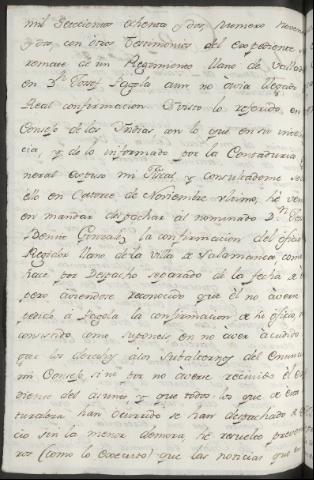 mil Setecientos ochenta y dos, numero noven
y dos, con otros Testimonios del Expediente s
remate de un Regimiento llano de Vallad
en Dn Josef Pagola aun no havia llegado
Real confirmacion. Visto lo referido, en
Consejo de las Indias, con lo que en su intelig
cia, y de lo informado por la Contaduria g
neral expuso mi Fiscal, y consultadome so
ello en Catorce de Noviembre ultimo, hé ven
en mandar despachar al nominado Dn
Benito Gonzalez la confirmacion del oficio
Regidor llano de la villa de Salamanca, como
hace por Despacho separado de la fecha de
pero aviendose reconocido que el no averse
pedido á Pagola la confirmacion de su oficio, no
consistido como suponeis en no aver acudido
par los derechos a los Subalternos del enunci
mi Consejo, si no por no averse recivido el Ex
diente del asunto, y que todos los que de esta
turaleza han ocurrido se han despachado
cio sin la menor demora, hé resuelto preven
ros (como lo executo) que las noticias que